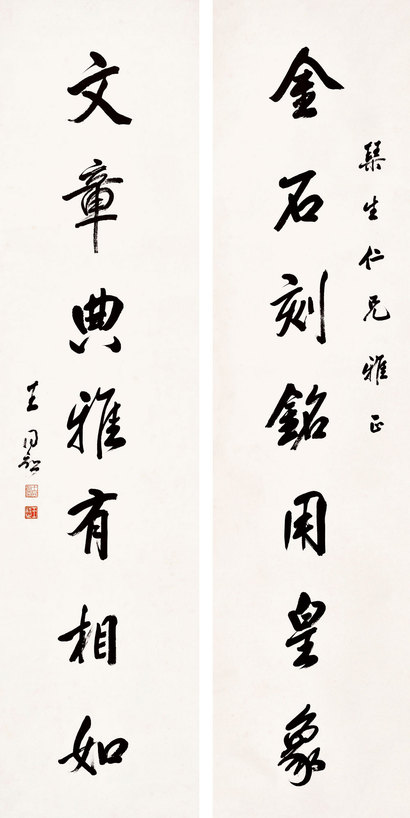 琹生仁兄雅正
金石刻銘用皇象
文章典雅有相如
王同愈